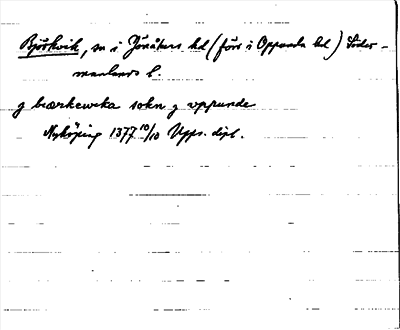 Björkvik, sn i Jönåkers hd (förr i Oppunda hd) Söder-
manlands l.
j biærkewika sokn j vppunde
Nyköping 1377 10/10 Upps. dipl.